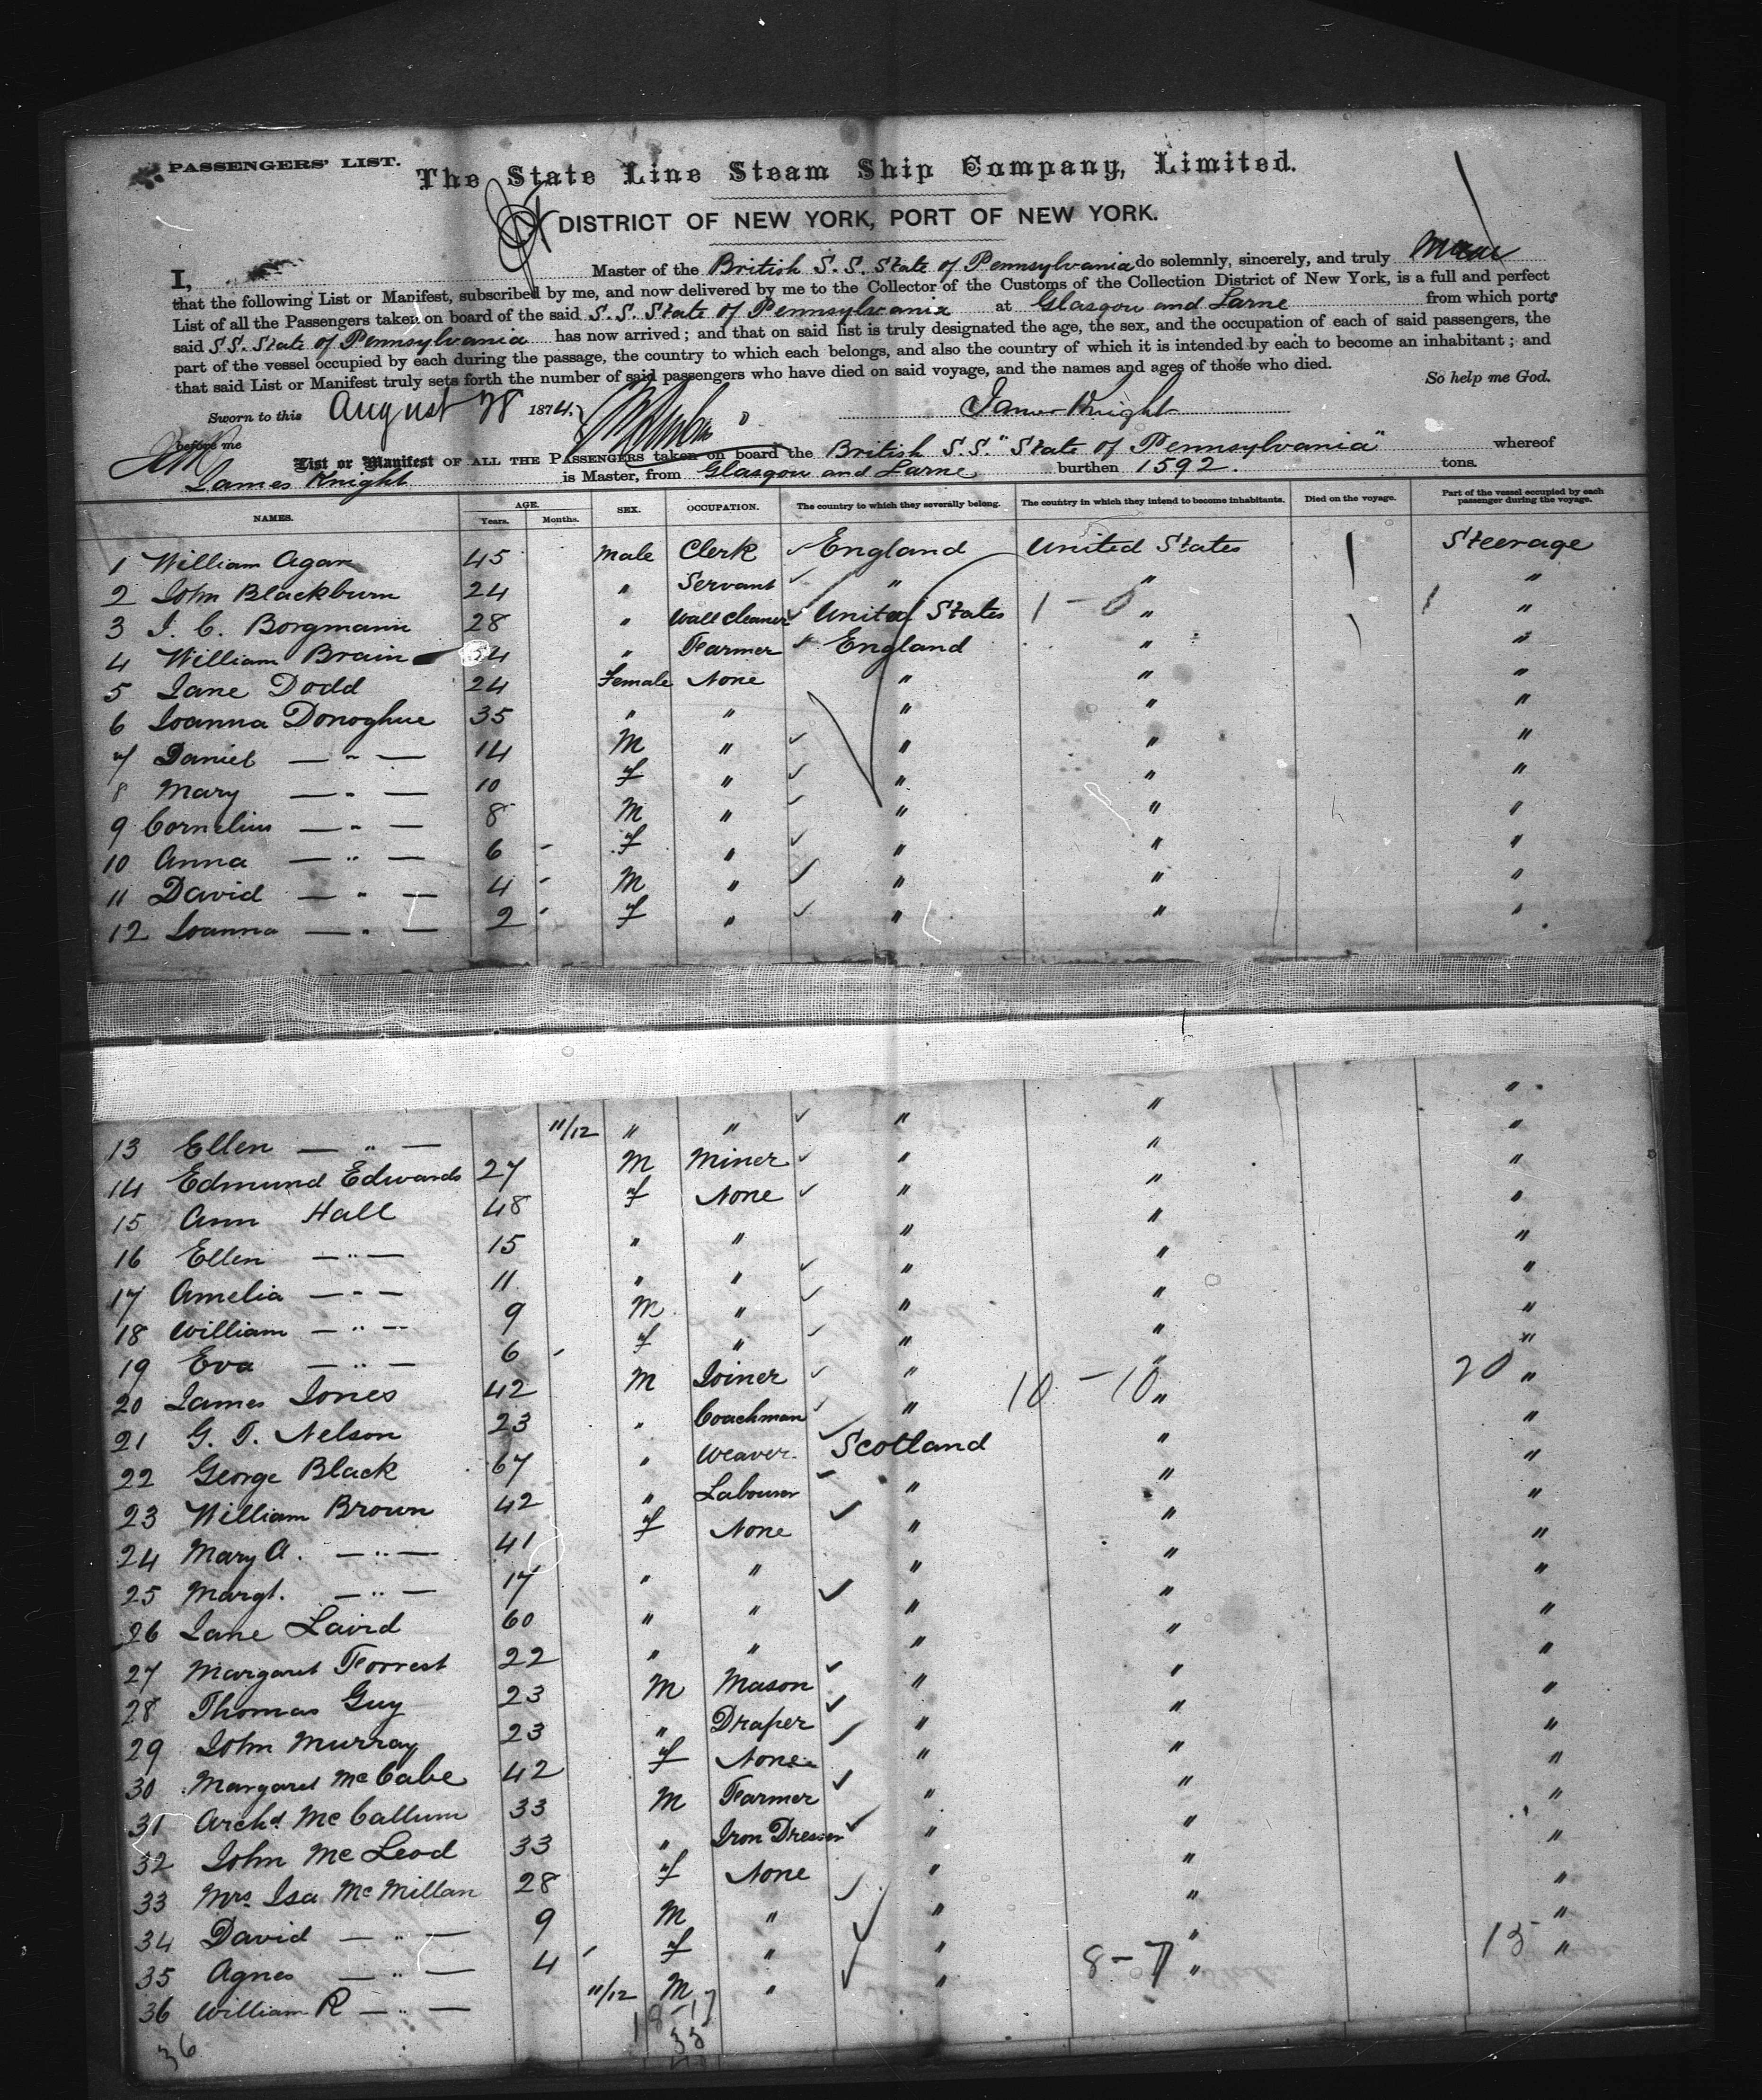 PASSENGERS' LIST.
The State Line Steam Ship Company, Limited.
DISTRICT OF NEW YORK, PORT OF NEW YORK.
I, Master of the British S.S. State of Pennsylvania do solemnly, sincerely, and truly
that the following List or Manifest, subscribed by me, and now delivered by me to the Collector of the Customs of the Collection District of New York, is a full and perfect
List of all the Passengers taken on board of the said S.S. State of Pennsylvania at Glasgow and Larne from which ports
said S.S. State of Pennsylvania has now arrived; and that on said list is truly designated the age, the sex, and the occupation of each of said passengers, the
part of the vessel occupied by each during the passage, the country to which each belongs, and also the country of which it is intended by each to become an inhabitant; and
that said List or Manifest truly sets forth the number of said passengers who have died on said voyage, and the names and ages of those who died. So help me God.
Sworn to this August 28 1874. James Knight
before me
List or Manifest OF ALL THE PASSENGERS taken on board the British S.S. "State of Pennsylvania" whereof
James Knight is Master, from Glasgow and Larne burthen 1592. tons.
NAMES. AGE. Years. Months. SEX. OCCUPATION. The country to which they severally belong. The country in which they intend to become inhabitants. Died on the voyage. Part of the vessel occupied by each passenger during the voyage.
1 William Agar 45 Male Clerk England United States Steerage
2 John Blackburn 24 " Servant " " "
3 J. C. Borgmann 28 " Wall Cleaner United States 1 - 0 " 1 "
4 William Brain 54 " Farmer England " "
5 Jane Dodd 24 Female None " " "
6 Joanna Donoghue 35 " " " " "
7 Daniel — " — 14 M " " " "
8 Mary — " — 10 f " " " "
9 Cornelius — " — 8 M " " " "
10 Anna — " — 6 f " " " "
11 David — " — 4 M " " " "
12 Joanna — " — 2 f " " " "
13 Ellen — " — 11/12 " " " " "
14 Edmund Edwards 27 M Miner " " "
15 Ann Hall 48 f None " " "
16 Ellen — " — 15 " " " " "
17 Amelia — " — 11 " " " " "
18 William — " — 9 M " " " "
19 Eva — " — 6 f " " " "
20 James Jones 42 M Joiner " " "
21 G. T. Nelson 23 " Coachman " 10 - 10 " 20 "
22 George Black 67 " Weaver Scotland " "
23 William Brown 42 " Labourer " " "
24 Mary A. — " — 41 f None " " "
25 Margt. — " — 17 " " " " "
26 Jane Laird 60 " " " " "
27 Margaret Forrest 22 " " " " "
28 Thomas Guy 23 M Mason " " "
29 John Murray 23 " Draper " " "
30 Margaret McCabe 42 f None " " "
31 Archd McCallum 33 M Farmer " " "
32 John McLeod 33 " Iron Dresser " " "
33 Mrs. Isa McMillan 28 f None " " "
34 David — " — 9 M " " " "
35 Agnes — " — 4 f " " " "
36 William R — " — 11/12 M " " 8 - 7 " 15 "
36 18-17